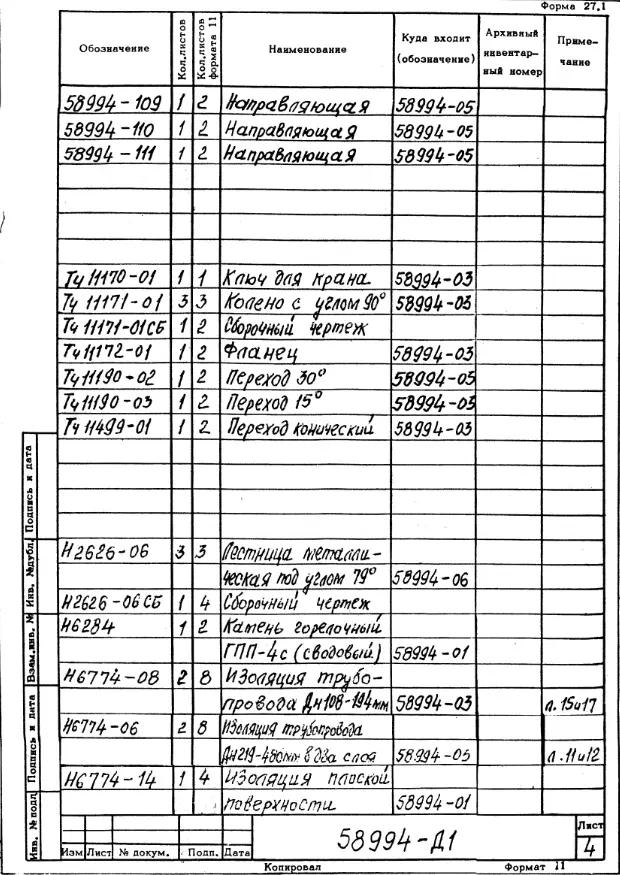 Форма 27.1
Обозначение Кол.листов Кол.листов формата 11 Наименование Куда входит (обозначение) Архивный инвентарный номер Примечание
58994-109 1 2 Направляющая 58994-05
58994-110 1 2 Направляющая 58994-05
58994-111 1 2 Направляющая 58994-05
Тч 11170-01 1 1 Ключ для крана 58994-03
Тч 11171-01 3 3 Колено с углом 90° 58994-03
Тч 11171-01СБ 1 2 Сборочный чертеж
Тч 11172-01 1 2 Фланец 58994-03
Тч 11190-02 1 2 Переход 30° 58994-05
Тч 11190-03 1 2 Переход 15° 58994-05
Тч 11499-01 1 2 Переход конический 58994-03
Н2626-06 3 3 Лестница металли-
ческая под углом 79° 58994-06
Н2626-06СБ 1 4 Сборочный чертеж
Н6284 1 2 Камень горелочный
ГПП-4с (сводовый) 58994-01
Н6774-08 2 8 Изоляция трубо-
провода Дн108-194мм 58994-03 л.15и17
Н6774-06 2 8 Изоляция трубопровода
Дн219-480мм в два слоя 58994-05 л.11и12
Н6774-14 1 4 Изоляция плоской
поверхности 58994-01
Подпись и дата
Инв. №дубл.
Взам.инв. №
Подпись и дата
Инв. №подл.
58994-Д1
Лист
4
Изм Лист № докум. Подп. Дата
Копировал Формат 11